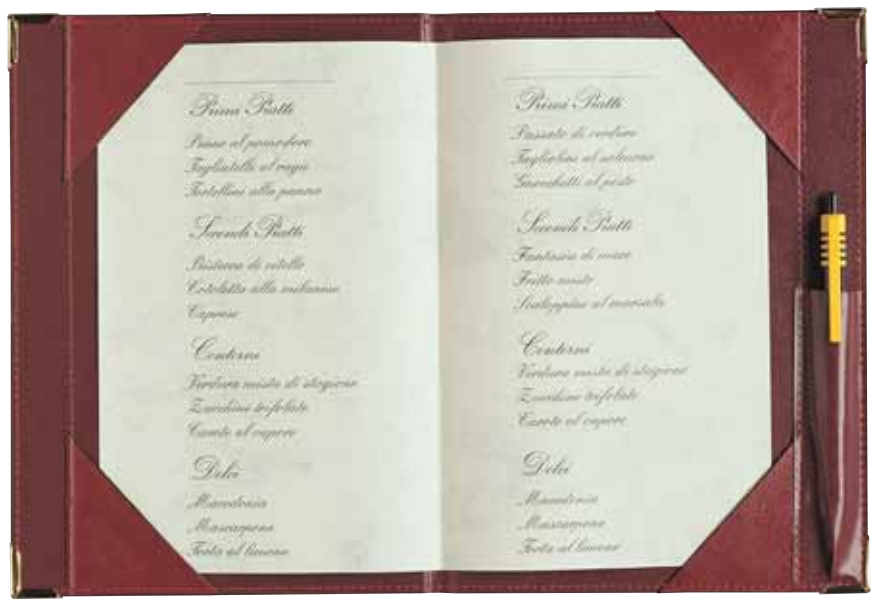 Primi Piatti
Penne al pomodoro
Tagliatelle al ragù
Tortellini alla panna
Secondi Piatti
Bistecca di vitello
Cotoletta alla milanese
Caprese
Contorni
Verdura mista di stagione
Zucchine trifolate
Carote al vapore
Dolci
Macedonia
Mascarpone
Torta al limone
Primi Piatti
Passato di verdure
Taglierini al salmone
Gnocchetti al pesto
Secondi Piatti
Fantasia di mare
Fritto misto
Scaloppine al marsala
Contorni
Verdura mista di stagione
Zucchine trifolate
Carote al vapore
Dolci
Macedonia
Mascarpone
Torta al limone